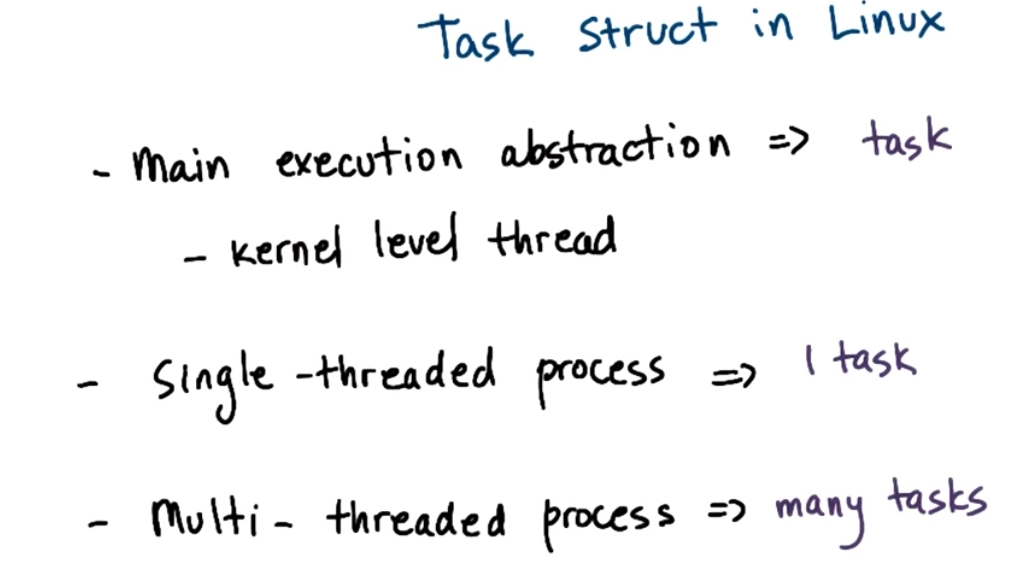 Task Struct in Linux
- Main execution abstraction => task
- kernel level thread
- Single-threaded process => 1 task
- Multi-threaded process => many tasks